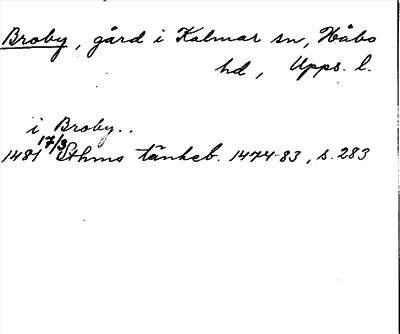 Broby, gård i Kalmar sn, Håbo
hd, Upps. l.
i Broby..
1481 17/3 Sthms tänkeb. 1474-83, s. 283